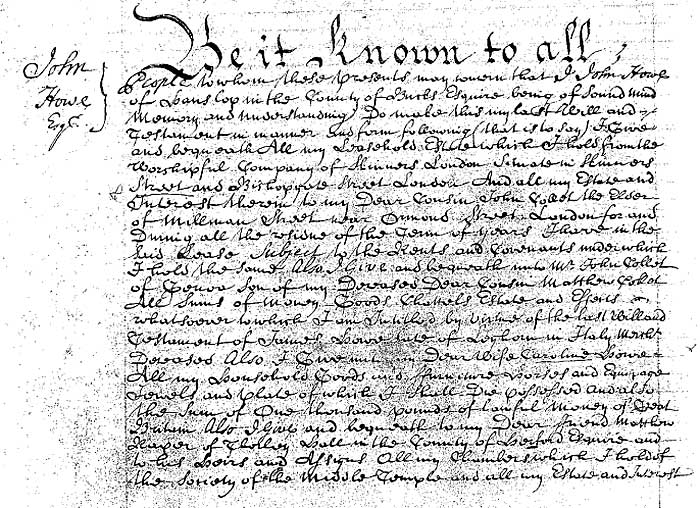 Be it Known to all
John
Howe
Esqr.
People to whom these presents may concern that I John Howe
of Hanslop in the County of Bucks Esquire being of sound mind
Memory and understanding Do make this my last Will and
Testament in manner and form following (that is to say) I Give
and bequeath All my Leasehold Estate which I hold from the
Worshipful Company of Skinners London Situate in Skinners
Street and Bishopgate Street London And all my Estate and
Interest therein to my Dear Cousin John Collet the Elder
of Millman Street near Ormond Street London for and
During all the residue of the Term of years I have in the
said Lease Subject to the Rents and Covenants under which
I hold the same Also I Give and bequeath unto Mr. John Collet
of Genoa Son of my Deceased Dear Cousin Matthew Collet
All Sums of Money Goods Chattels Estate and Effects
whatsoever to which I am Intitled by virtue of the last Will and
Testament of James Howe late of Leghorn in Italy Mercht.
Deceased Also I Give unto Dear Wife Caroline Howe
All my Household Goods and Furniture Horses and Equipage
Jewels and Plate of which I shall Die possessed and also
the Sum of One thousand pounds of lawful Money of Great
Britain Also I Give and bequeath to my Dear friend Matthew
Raper of Thorley Hall in the County of Hertford Esquire and
to his Heirs and Assigns All my Chambers which I hold of
the Society of the Middle Temple and all my Estate and Interest